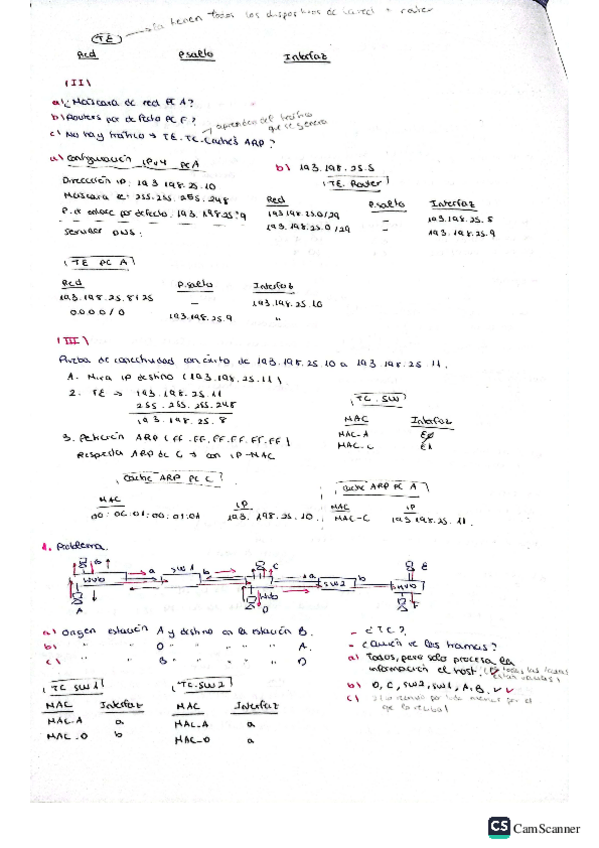 la tienen todos los dispositivos de la red + router
TE
Red P.salto Interfaz
(II)
a) ¿Máscara de red PC A?
b) Routers por defecto PC F?
aprenden del tráfico que se genera
c) No hay tráfico → TE, TC, Cachés ARP?
a) Configuración IPv4 PC A
Dirección IP: 193.198.25.10
Máscara R: 255.255.255.248
P. de enlace por defecto: 193.198.25.9
Servidor DNS:
b) 193.198.25.5
TE. Router
Red P.salto Interfaz
193.198.25.0/29 — 193.198.25.5
193.198.25.0/29 — 193.198.25.9
TE PC A
Red P.salto Interfaz
193.198.25.8/25 — 193.198.25.10
0.0.0.0/0 193.198.25.9 "
(III)
Prueba de conectividad con éxito de 193.198.25.10 a 193.198.25.11.
1. Mira IP destino (193.198.25.11)
2. TE → 193.198.25.11
255.255.255.248
193.198.25.8
3. Petición ARP (FF.FF.FF.FF.FF.FF)
Respuesta ARP de C → con IP-MAC
TC. SW
MAC Interfaz
MAC-A E0
MAC-C E1
Caché ARP PC C
MAC IP
00:06:01:00:01:01 193.198.25.10.
Caché ARP PC A
MAC IP
MAC-C 193.198.25.11.
1. Problema.
B a SW1 b C a SW2 b E
HUB HUB HUB
A D
a) Origen estación A y destino en la estación B.
b) " " D " " " A.
c) " " B " " " D
- ¿TC?
- ¿Quién ve las tramas?
a) Todos, pero solo procesa la información el host.
b) D, C, SW2, SW1, A, B.
c)
TC SW1
MAC Interfaz
MAC-A a
MAC-D b
TC-SW2
MAC Interfaz
MAC-A a
MAC-D a
CS CamScanner